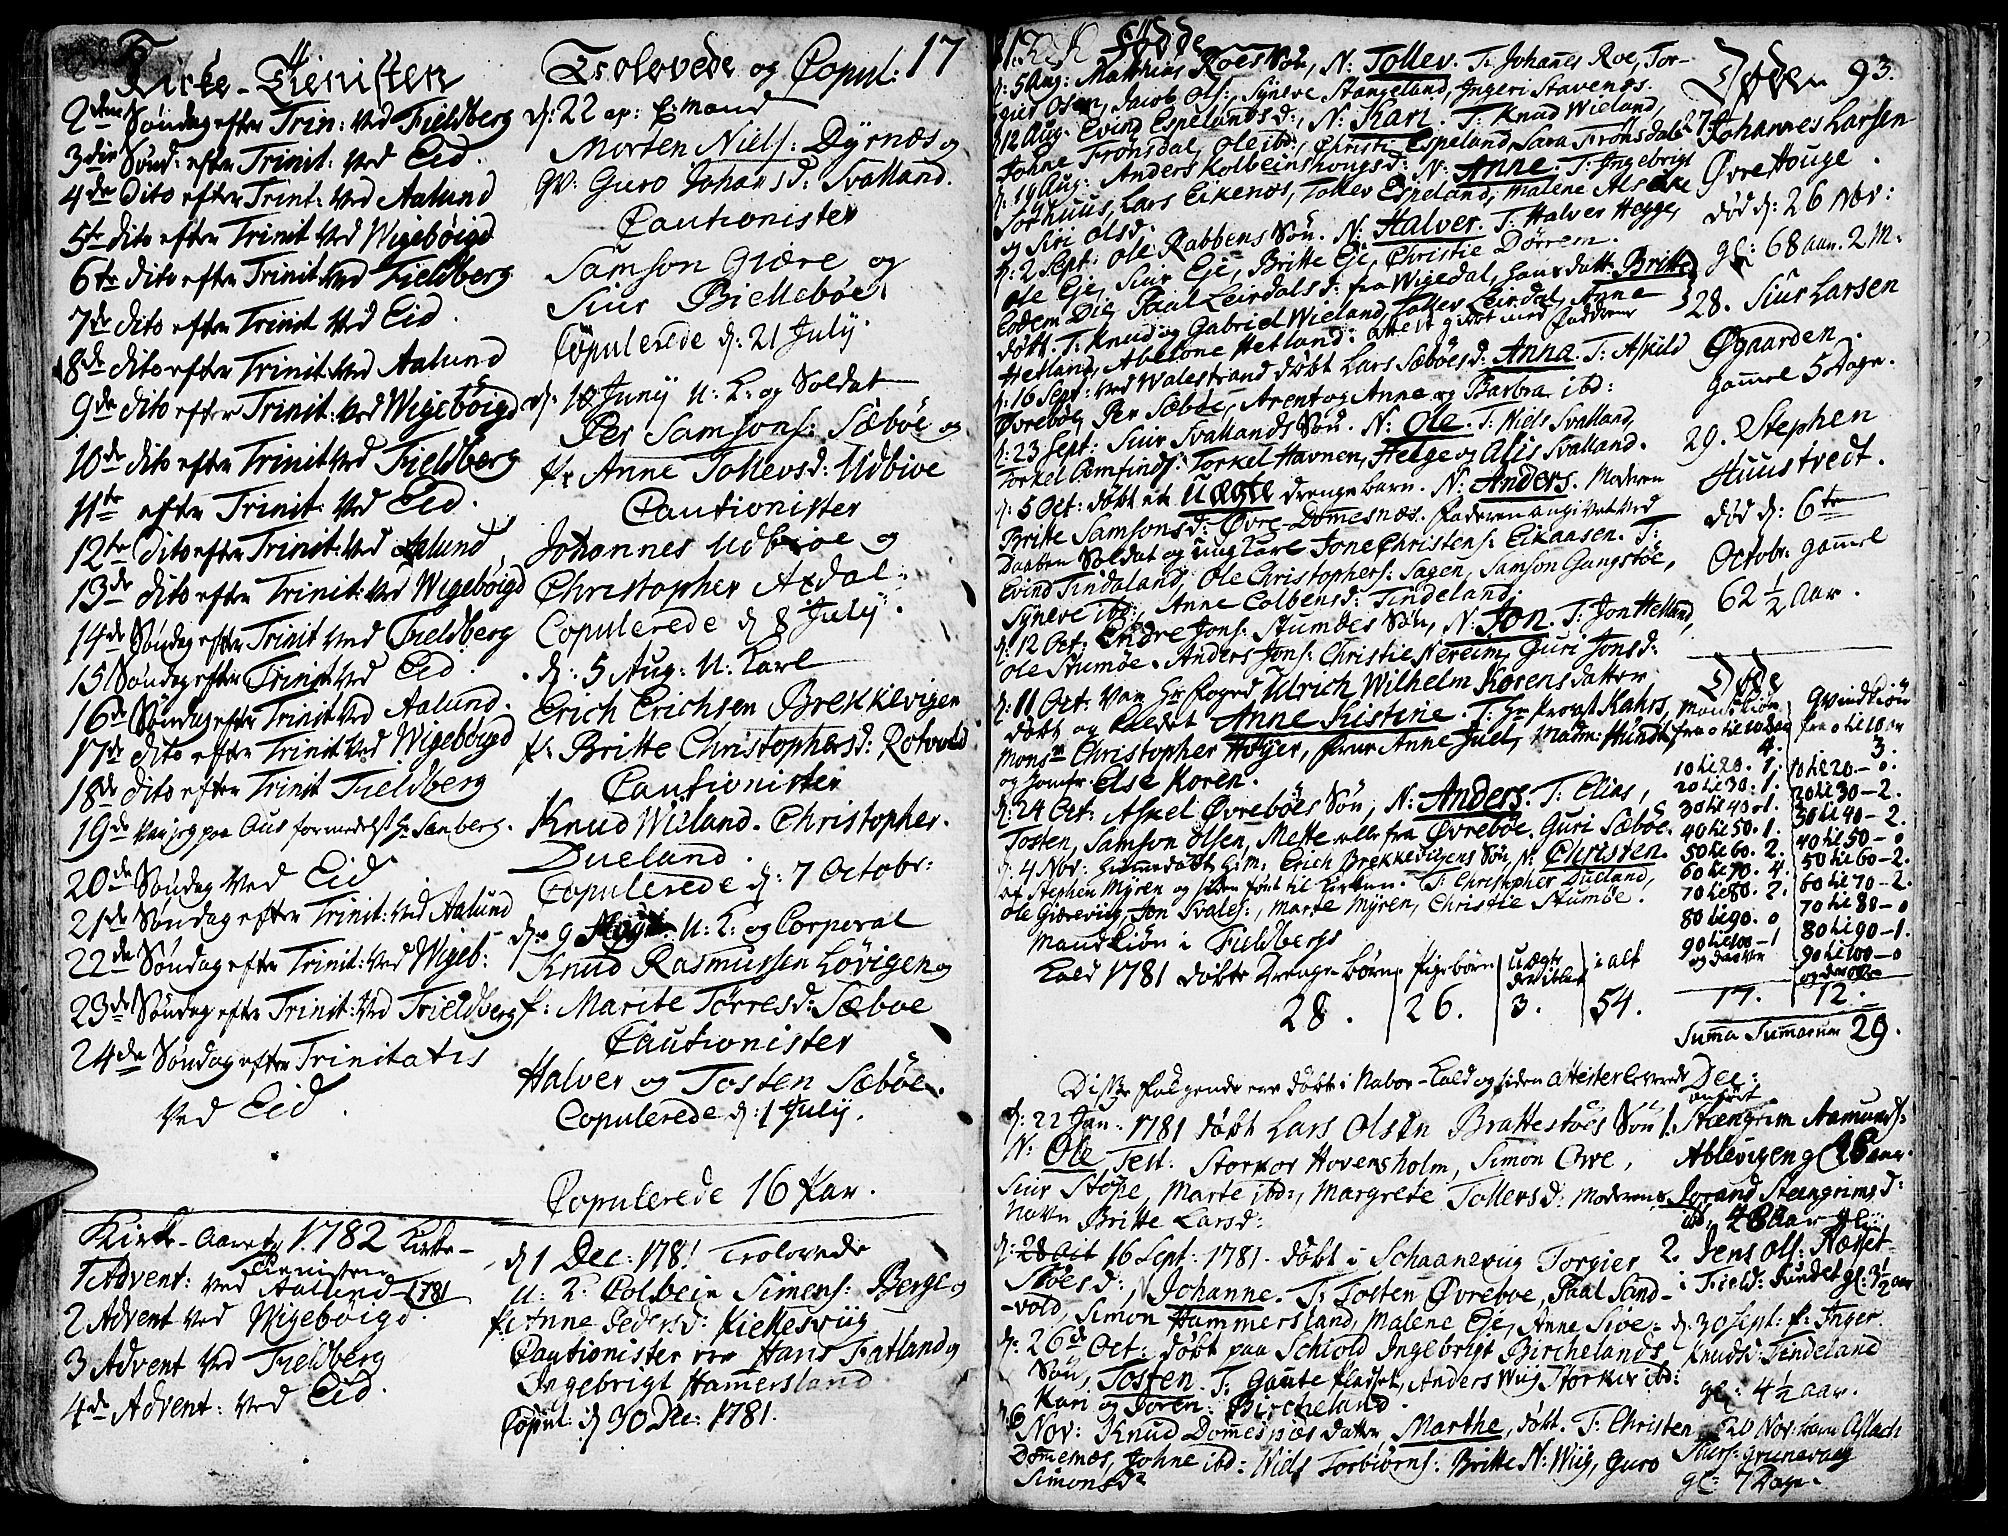 Kirke-Tienisten
2den Søndag efter Trin: ved Fieldberg
3die Sønd: efter Trinit: ved Eid.
4de dito efter Trint: ved Aalund
5te dito efter Trinit ved Wigebøigd
6te dito efter Trinit ved Fieldberg
7de dito efter Trinit ved Eid.
8de dito efter Trinit: ved Aalund
9de dito efter Trinit: ved Wigebøigd
10de dito efter Trinit ved Fieldberg
11te efter Trinit: ved Eid.
12te dito efter Trinit: ved Aalund
13de dito efter Trinit: ved Wigebøigd
14de Søndag efter Trinit ved Fieldberg
15 Søndag efter Trinit ved Eid.
16de Søndag efter Trinit ved Aalund.
17de dito efter Trinit ved Wigebøigd
18de dito efter Trinit Fieldberg
19de var jeg paa Aus formedelst Hr Sanberg.
20de Søndag ved Eid
21de Søndag efter Trinit: ved Aalund
22de Søndag efter Trinit: ved Wigeb:
23de Søndag efter Trinit: ved Fieldberg
24de Søndag efter Trinitatis
ved Eid.
Kirke-Aaret 1782 Kirke-
Tienisten
1 Advent: ved Aalund 1781
2 Advent ved Wigebøigd.
3 Advent ved Fieldberg
4de Advent: ved Eid.
Trolovede og Copul: 17
d: 22 ap: E: Mand
Morten Niels: Dyrnæs og
qv: Guro Johansd: Svalland.
Cautionister
Samson Giære og
Siur Biellebøe.
Copulerede d: 21 July.
d: 10 Junij u: K: og Soldat
Per Samsons: Sæbøe og
p: Anne Tollevsd: Udbioe
Cautionister
Johannes Udbioe og
Christopher Axdal.
Copulerede d 8 July.
d: 5 Aug: u: Karl
Erich Erichsen Brekkevigen
p: Britte Christophersd: Rotvold
Cautionister
Knud Wieland. Christopher
Dueland.
Copulerede d: 7 Octobr:
d: 9 u: K: og Corporal
Knud Rasmussen Løvigen og
p: Marite Torresd: Sæboe
Cautionister
Halver og Tosten Sæbøe.
Copulerede d: 1 July.
Copulerede 16 Par.
d 1 Dec: 1781 Trolovede
u: K: Colbein Simens: Berge og
p: Anne Pedersd: Kiellesviig
Cautionister ere Hans Fatland og
Ingebrigt Hamersland
Copul: d 30 Dec: 1781.
Fødde
d: 5 Aug: Matthias Roes Søn, N: Tollev. T: Johanes Roe, Tor-
gier Osen, Jacob Ols: Syneve Stangeland, Ingeri Stavenes.
12 Aug. Evind Espelands d:, N: Kari. T: Knud Wieland,
Johne Fronsdal, Ole ibd:, Christi Espeland, Sara Fronsdal.
d: 19 Aug: Anders Kolbeinshougs d: N: Anne. T: Ingebrigt
Sørhuus, Lars Eikenes, Tollev Espeland, Malene Alsaker
og Siri Olsd:
d: 2 Sept: Ole Rabbens Søn. N: Halver. T: Halver Hegge,
Ole Eje, Siur Eje, Britte Eje, Christie Dørrem.
Eodem Die Paal Leirdals d: fra Wigedal, hans datt: Britte
døbt. T: Knud og Gabriel Wieland, Tollev Leirdal, Anne
Hetland, Abelone Hetland: attest givet med Faderen
d: 16 Sept: ved Walestrand døbt Lars Sæbøes d: Anna. T: Askild
Øvrebøe, Per Sæbøe, Arent og Anne og Barbra ibd:
d: 23 Sept. Siur Svallands Søn. N: Ole. T: Niels Svalland,
Torkel Comfinds: Torkel Havnen, Helge og Alis Svalland.
d: 5 Oct: døbt et Uægte drenge barn. N: Anders. Moderen
Britte Samsonsd: Øvre-Domesnæs. Faderen angivet ved
Daaben Soldat og ung Karl Jone Christens: Eikaasen. T:
Evind Tindaland, Ole Christophers: Sagen, Samson Gangstøe,
Syneve ibd:, Anne Colbensd: Tindeland.
d: 12 Oct: Endre Jons: Stumøes Søn, N: Jon. T: Jon Hetland,
Ole Stumøe. Anders Jons: Christie Nereim, Guri Jonsd:
d: 11 Oct: var Hr Foged Ulrich Wilhelm Korens datter
døbt og kaldet Anne Kistine. T: Hr Provst Kahrs,
Monsr Christopher Høyer, Frue Anne Juel, Madm: Hundt,
og Jomfr: Else Koren.
d: 24 Oct: Askel Øvrebøes Søn, N: Anders. T: Elias,
Tosten, Samson Olsen, Mette alle fra Øvrebøe. Guri Sæbøe.
d: 4 Nov: hiemmedøbt Erich Brekkevigens Søn N: Christen.
af Stephen Myren og siden ført til Kirken. T: Christopher Dueland,
Ole Giæreviig, Jon Svales:, Marte Myren, Christie Stumøe.
Mandkiøn i Fieldbergs
Kald 1781 døbte Drenge børn 28. | Pigebørn 26. | uægte deriblant 3. | i alt 54.
Disse følgende ere døbt i Nabo-Kald og siden attester leverede
d: 22 Jan: 1781 døbt Lars Olsen Brattestøes Søn
N: Ole. Test: Storkor Hovensholm, Simon Owe,
Siur Støpe, Marte ibd:, Margrete Tollevsd: Moderens
Navn Britte Larsd:
d: 28 Oct 16 Sept: 1781. døbt i Schaanevig Torgier
Støes d:, Johanne. T: Tosten Øvreboe, Paal Sand-
vold, Simon Hammersland, Malene Eje, Anne Sive:
d: 26de Oct: døbt paa Schiold Ingebrigt Birchelands
Søn, Tosten. T: Gaute Anders Wiig Storker ibd:
Kari og Joren: Bircheland.
d: 6 Nov: Knud Domesnæs datter Marthe, døbt. T: Christen
Domenæs, Johne ibd: Niels Torbiørns: Britte N: Wiig, Guro
Simonsdr
Døde 93.
27. Johannes Larsen
Øvre Houge.
død d: 26 Nov:
gl: 68 aar. 2 M:
28. Siur Larsen
Øgaarden.
gamel 5 Dage.
29. Stephen
Huustvedt.
død d: 6te
Octobr: gamel
62 1/2 Aar.
Døde
Mandkiøn | Qvindkiøn
fra 0 til 10 aar 4. | fra 0 til 10 3.
10 til 20. 1. | 10 til 20.-0.
20 til 30. 1. | 20 til 30-2.
30 til 40 1. | 30 til 40-2.
40 til 50. 1. | 40 til 50-0
50 til 60. 2. | 50 til 60-2.
60 til 70. 4. | 60 til 70-2.
70 til 80. 2. | 70 til 80-0
80 til 90. 0 | 80 til 90-1.
90 til 100-1 | 90 til 100-0
og derover | og derover
17. | 12.
Summa Summarum 29.
Dec:
anført
1. Steengrim Aamunds:
Ablevigen gl aar.
Jorand Steengrimsd:
ibd: 28 Aar gl:
2. Jens Ols: Næsset
i Field: Sundet gl: 3 1/2 aar
d: 30 Sept: p: Inger
Knudsd: Tindeland
gl: 4 1/2 aar.
d 20 Nov: Aslach
Siurs: Grunevaag
gl: 7 Dage.